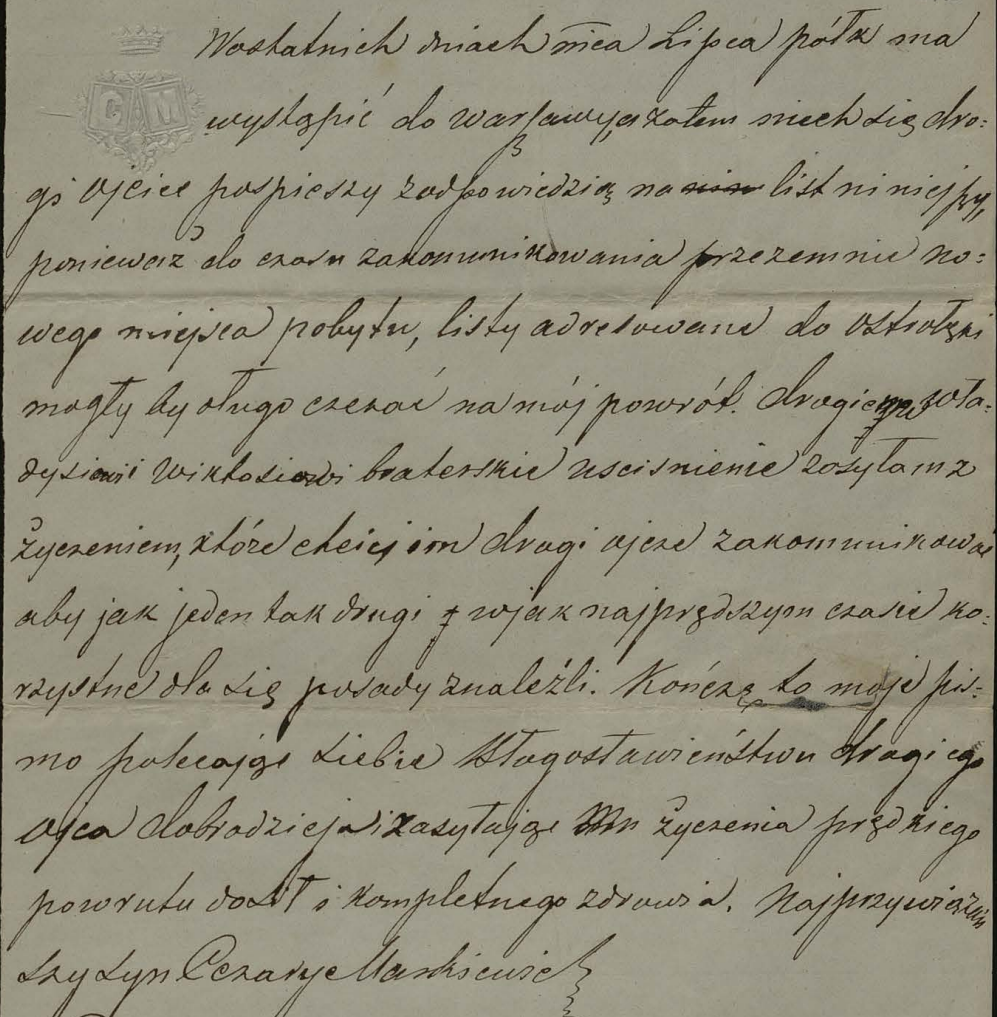 C M
Wostatnich dniach mca Lipca półk ma
wystąpić do Warszawy, a zatem niech się dro:
gi Ojciec pospieszy zodpowiedzią na list niniejszy,
ponieważ do czasu zakomunikowania przezemnie no:
wego miejsca pobytu, listy adresowane do Ostrołęki
mogły by długo czekać na mój powrót. drogiemu Wła:
dysiowi Wiktosiowi braterskie usciśnienie zasyłam z
życzeniem, które chciej im drogi ojcze zakomunikować
aby jak jeden tak drugi wjak najprędszym czasie ko:
rzystne dla się posady znaleźli. Kończę to moje pis-
mo polecając siebie błogosławieństwu drogiego
Ojca dobrodzieja i zasyłając Mu życzenia prędkiego
powrutu do sił i kompletnego zdrowia. Najprzywiązań
szy syn Cezary Mankiewicz